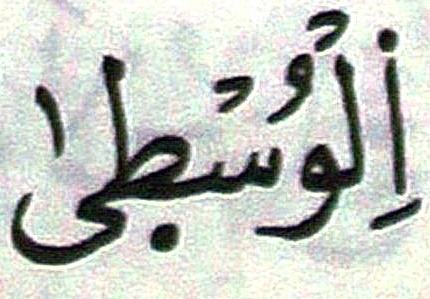 اِلْوُسْطىٰ